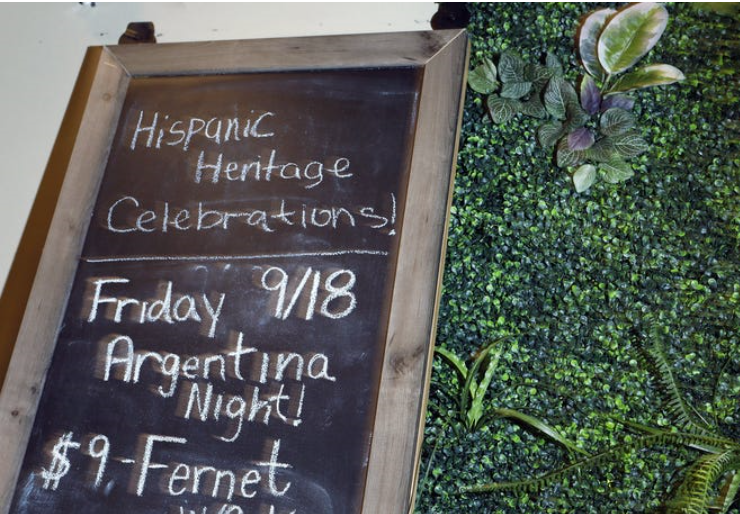 Hispanic
Heritage
Celebrations!
Friday 9/18
Argentina
Night!
$9.-Fernet